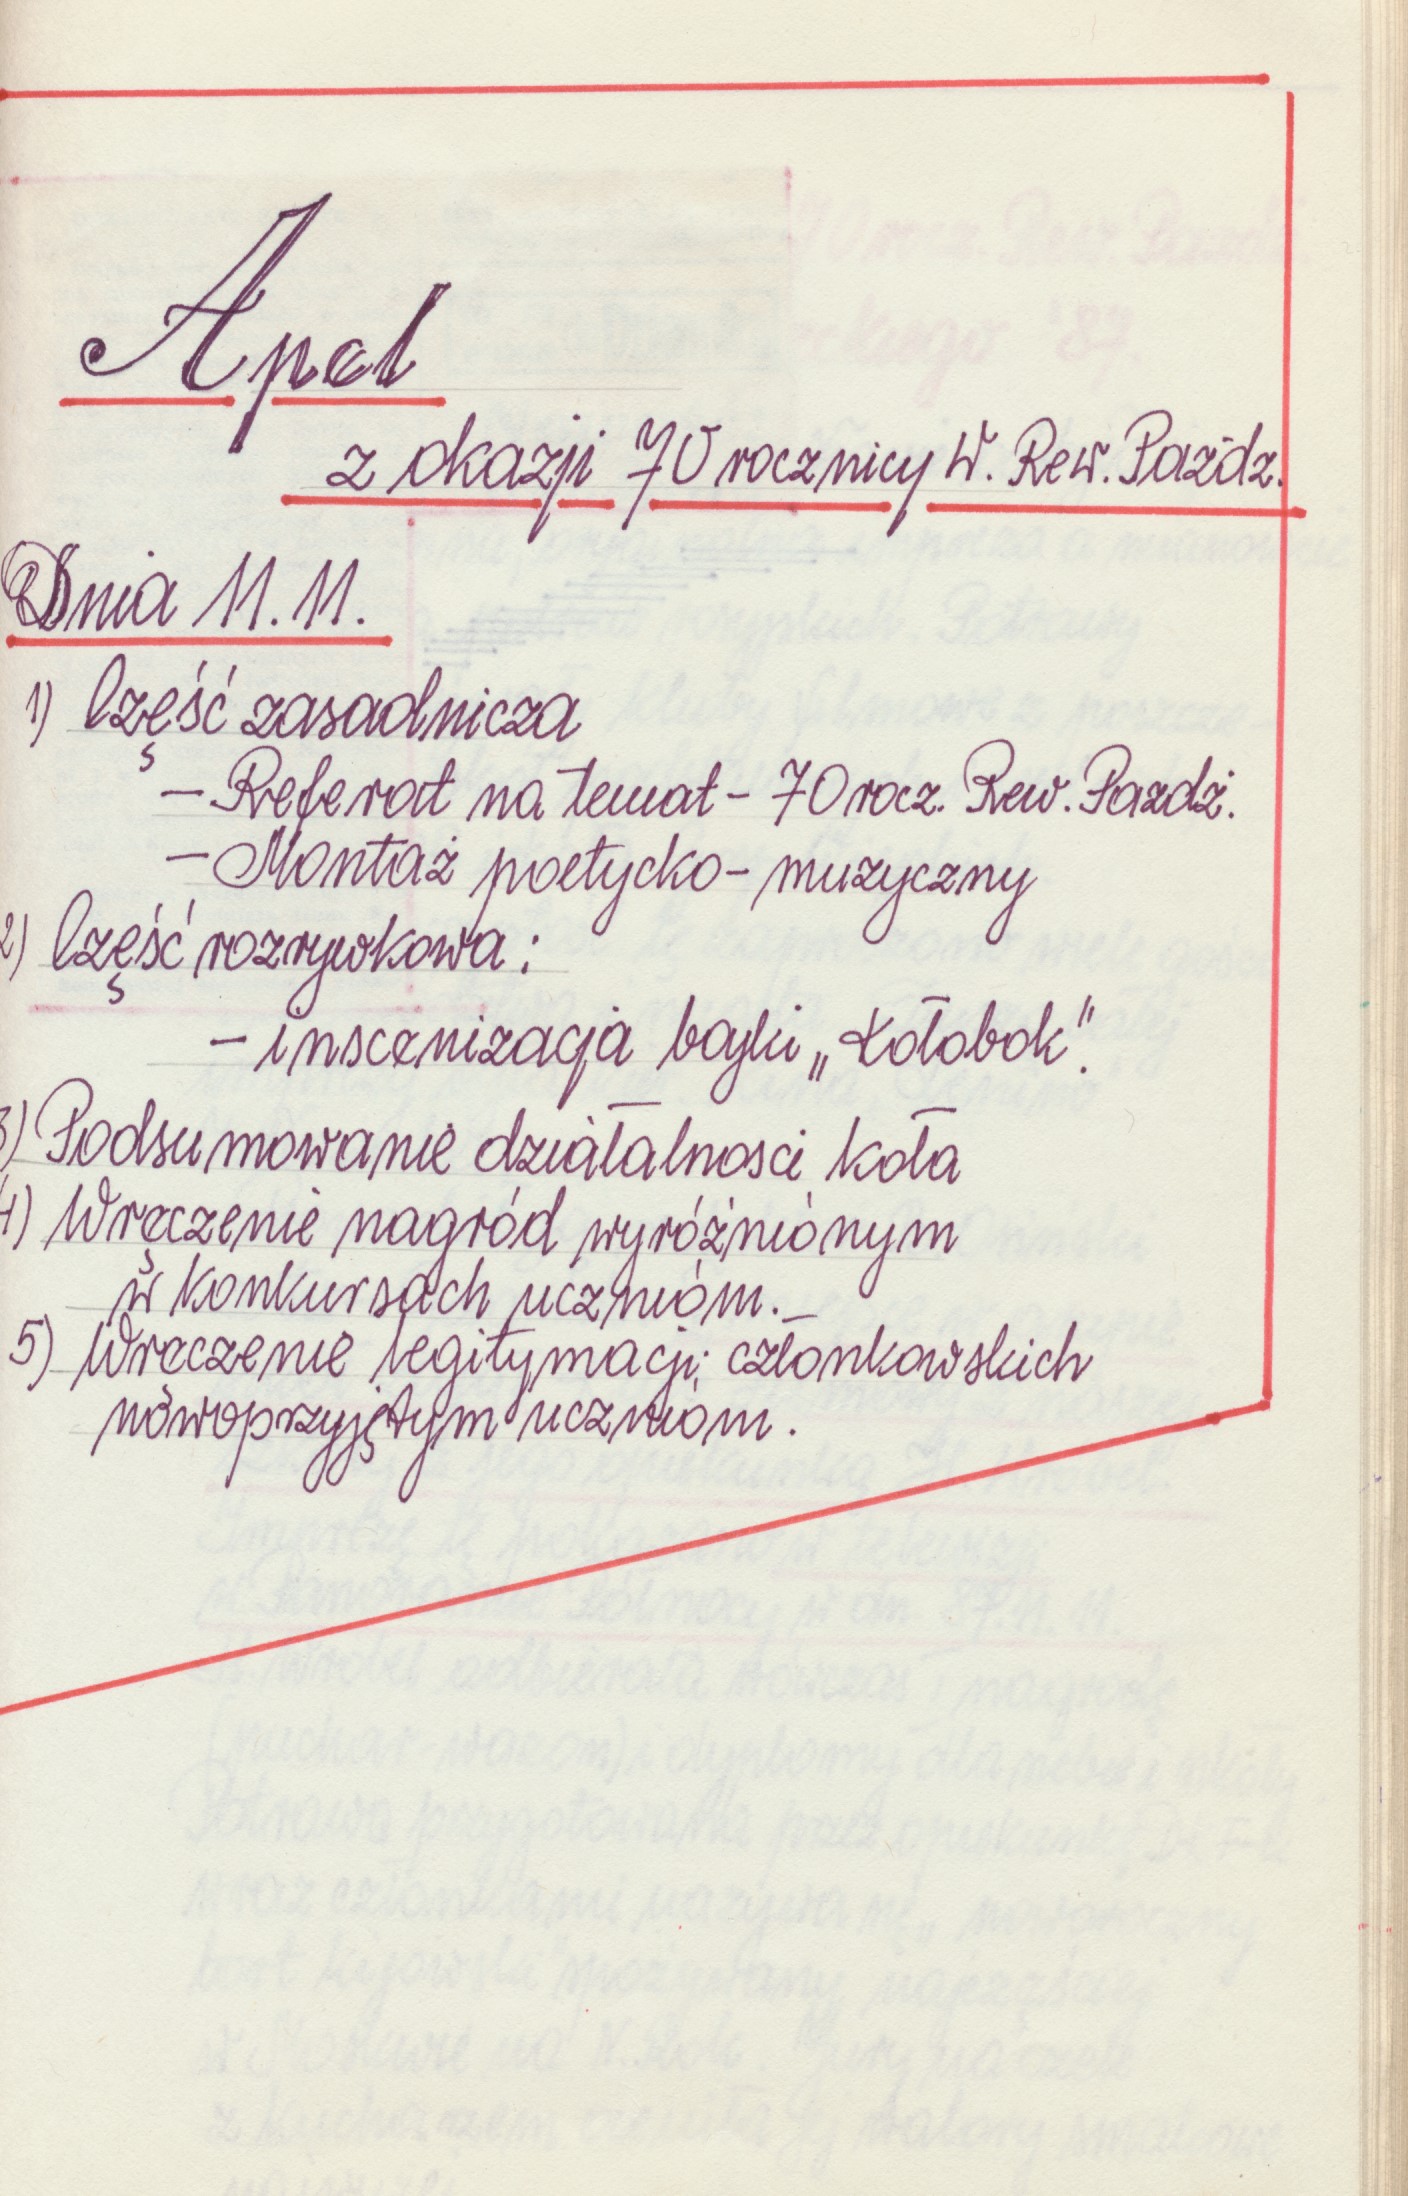 Apel
z okazji 70 rocznicy W. Rew. Paźdz.
Dnia 11.11.
1) Część zasadnicza
- Referat na temat - 70 rocz. Rew. Pazdź.
- Montaż poetycko - muzyczny
2) Część rozrywkowa:
- inscenizacja bajki „Kołobok".
3) Podsumowanie działalnosci koła
4) Wręczenie nagród wyróżnionym
w konkursach uczniom.
5) Wręczenie legitymacji członkowskich
nowoprzyjętym uczniom.